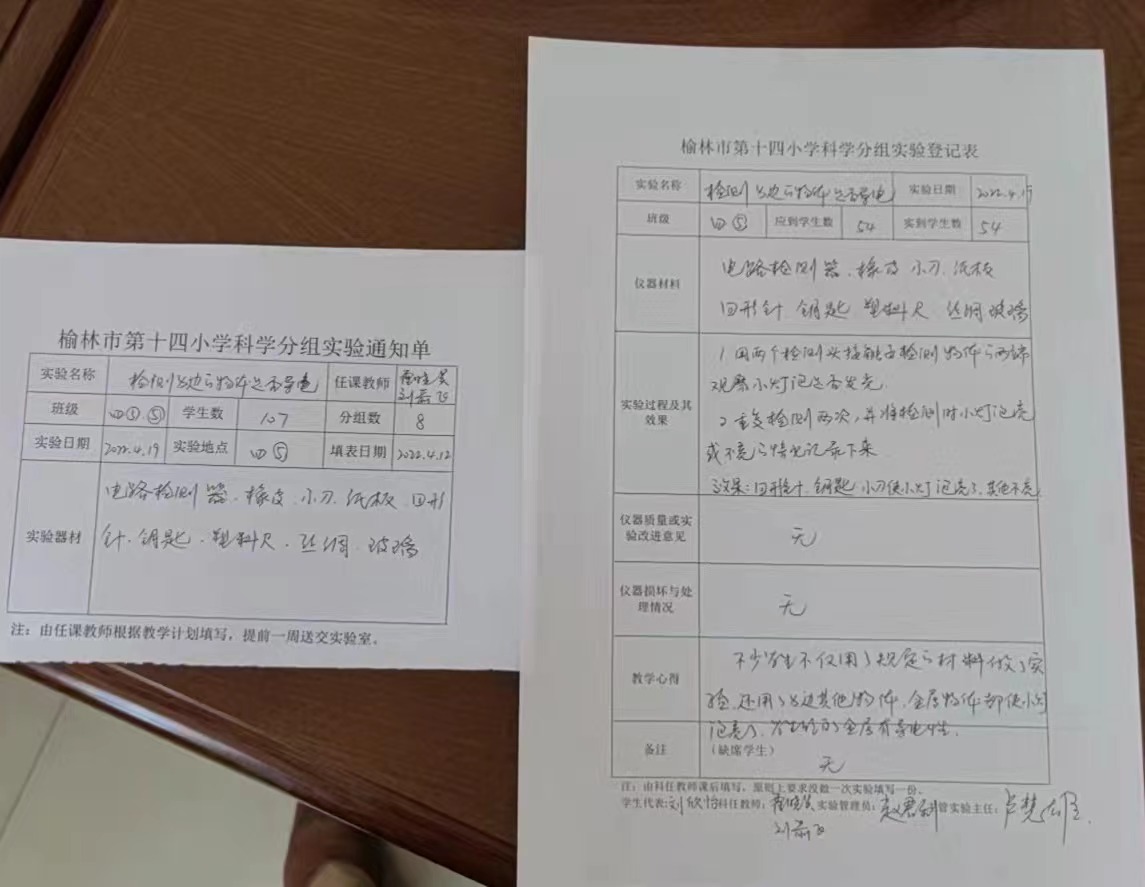 榆林市第十四小学科学分组实验通知单
实验名称 检测身边的物体是否导电 任课教师
班级 四①.⑤ 学生数 107 分组数 8
实验日期 2022.4.19 实验地点 四⑤ 填表日期 2022.4.12
实验器材 电路检测器.橡皮.小刀.纸板.回形
针.钥匙.塑料尺.丝绸.玻璃
注：由任课教师根据教学计划填写，提前一周送交实验室。
榆林市第十四小学科学分组实验登记表
实验名称 检测身边的物体是否导电 实验日期 2022.4.19
班级 四⑤ 应到学生数 54 实到学生数 54
仪器材料 电路检测器.橡皮 小刀.纸板
回形针 钥匙 塑料尺 丝绸 玻璃
实验过程及其效果 1 用两个检测头接触被检测物体的两端
观察小灯泡是否发亮.
2 重复检测两次,并将检测时小灯泡亮
或不亮的情况记录下来
效果:回形针.钥匙 小刀使小灯泡亮了,其他不亮
仪器质量或实验改进意见 无
仪器损坏与处理情况 无
教学心得 不少学生不仅用了规定的材料做了实
验,还用了身边其他物体,金属物体都使小灯
泡亮了,学生知道金属有导电性.
备注 （缺席学生）
无
注：由科任教师课后填写，原则上要求没做一次实验填写一份。
学生代表:刘欣怡 科任教师: 实验管理员: 管实验主任: